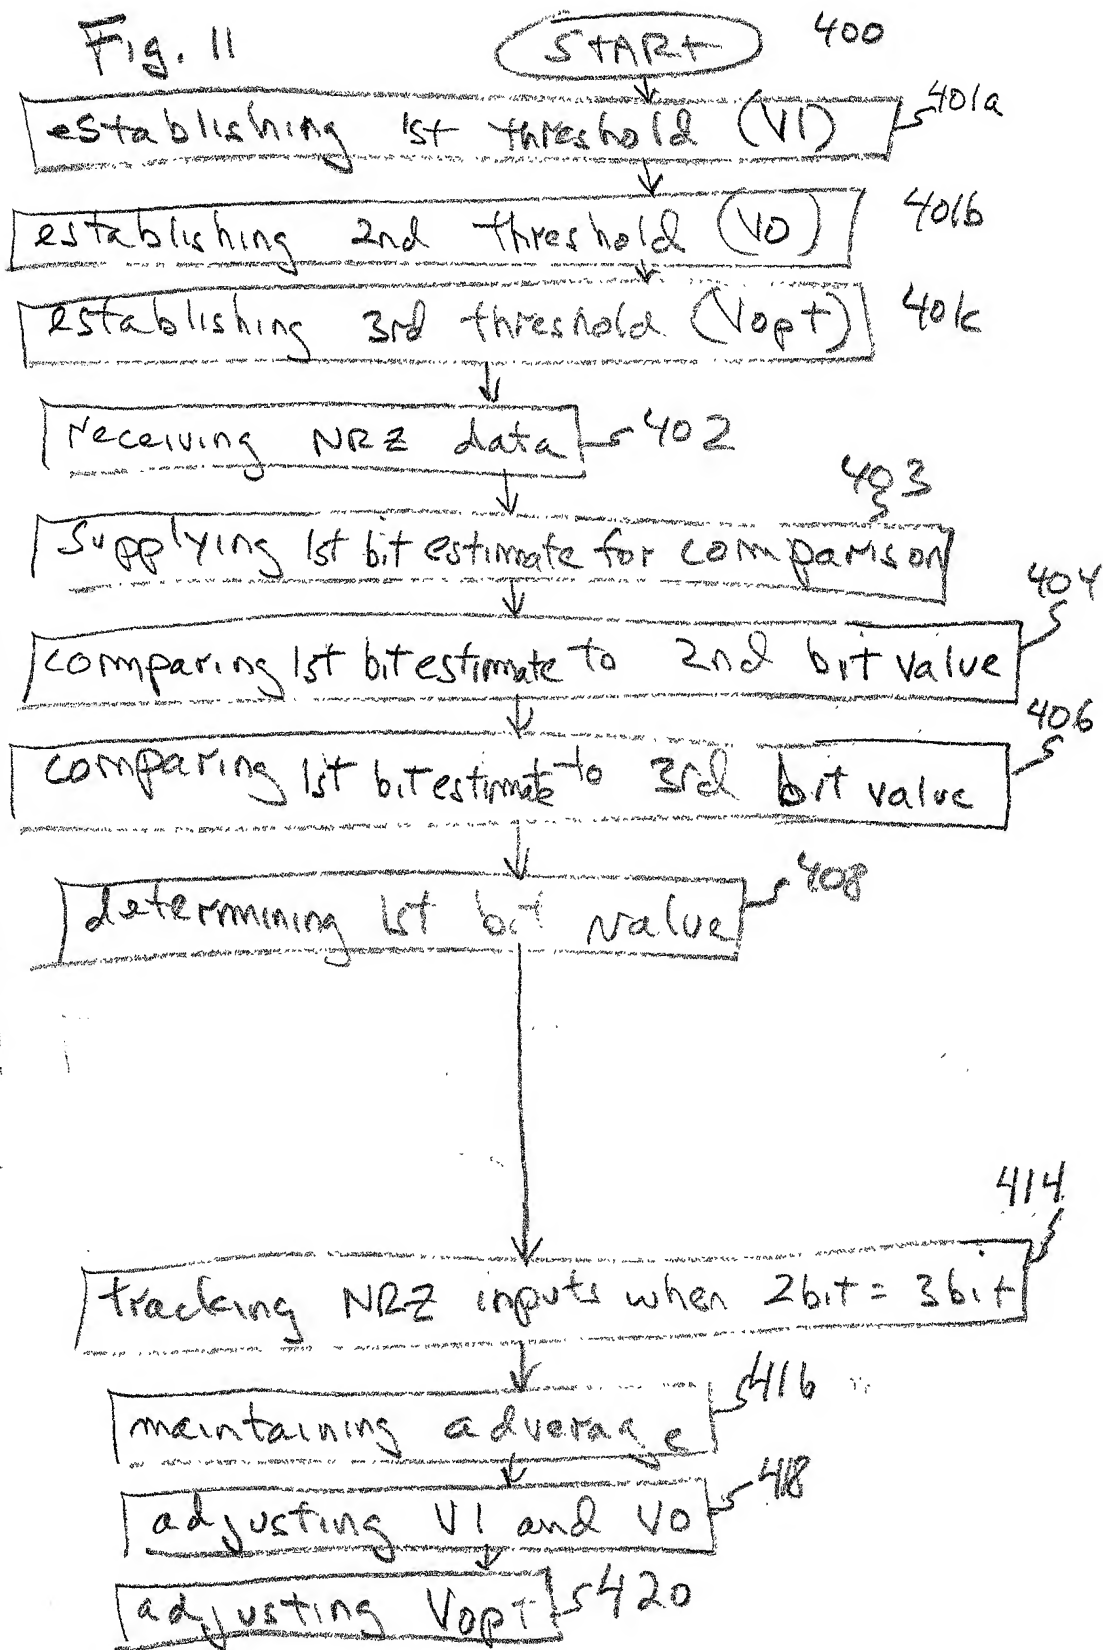 Fig. 11
START 400
establishing 1st threshold (V1) 401a
establishing 2nd threshold (V0) 401b
establishing 3rd threshold (Vopt) 401c
receiving NRZ data 402
403
Supplying 1st bit estimate for comparison
404
comparing 1st bit estimate to 2nd bit value
406
comparing 1st bit estimate to 3rd bit value
determining 1st bit value 408
414
tracking NRZ inputs when 2bit = 3bit
maintaining adverage 416
adjusting V1 and V0 418
adjusting Vopt 420